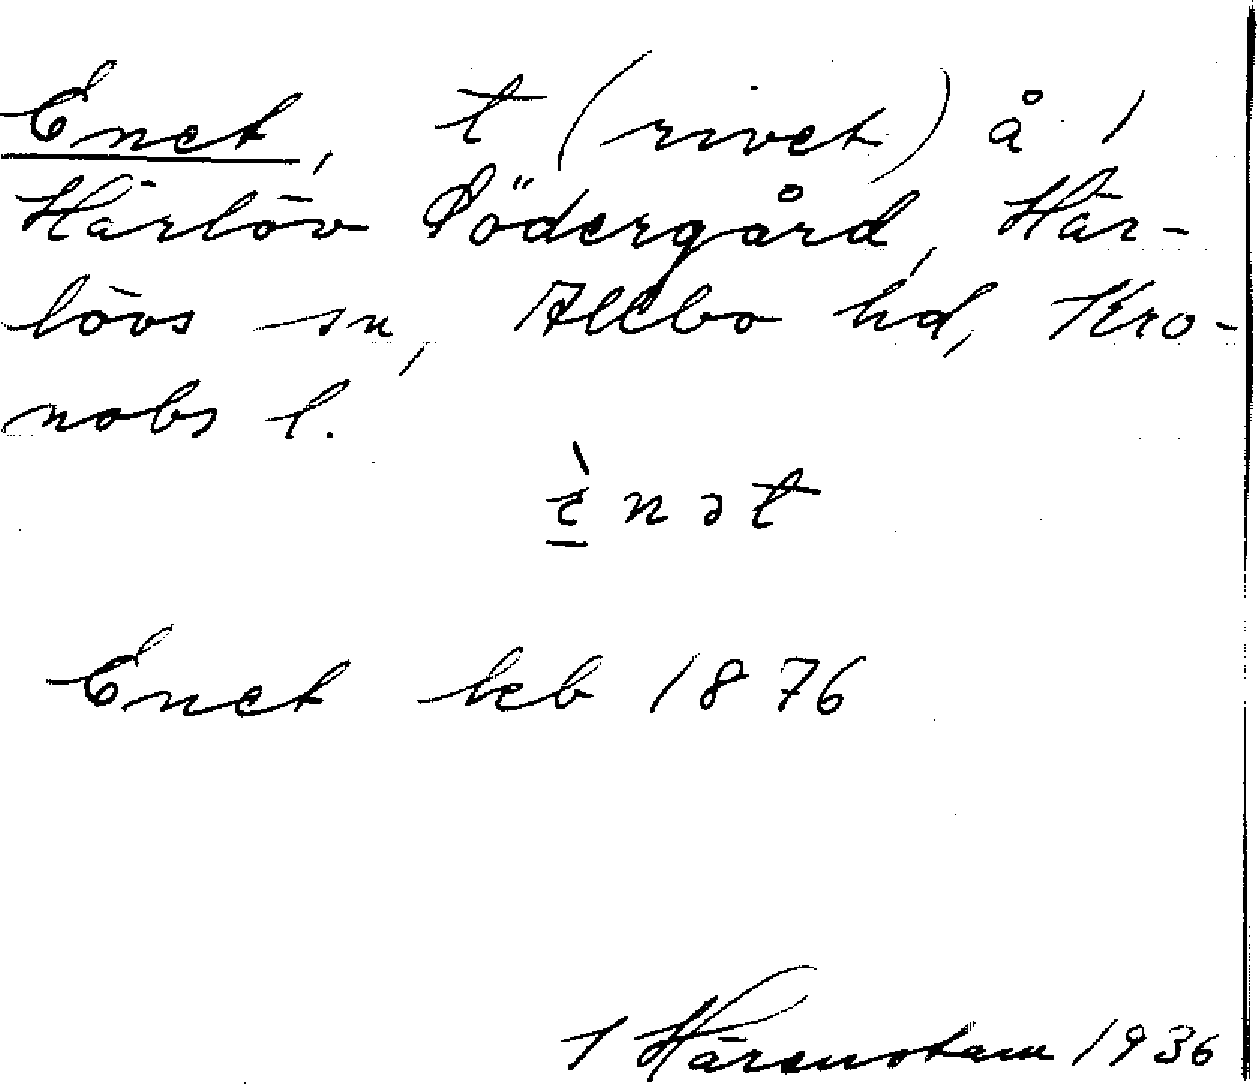 Enet, t (rivet) å 1
Härlöv Södergård, Här-
lövs sn, Allbo hd, Kro-
nobs l.
è̱nət
Enet kb 1876
1936